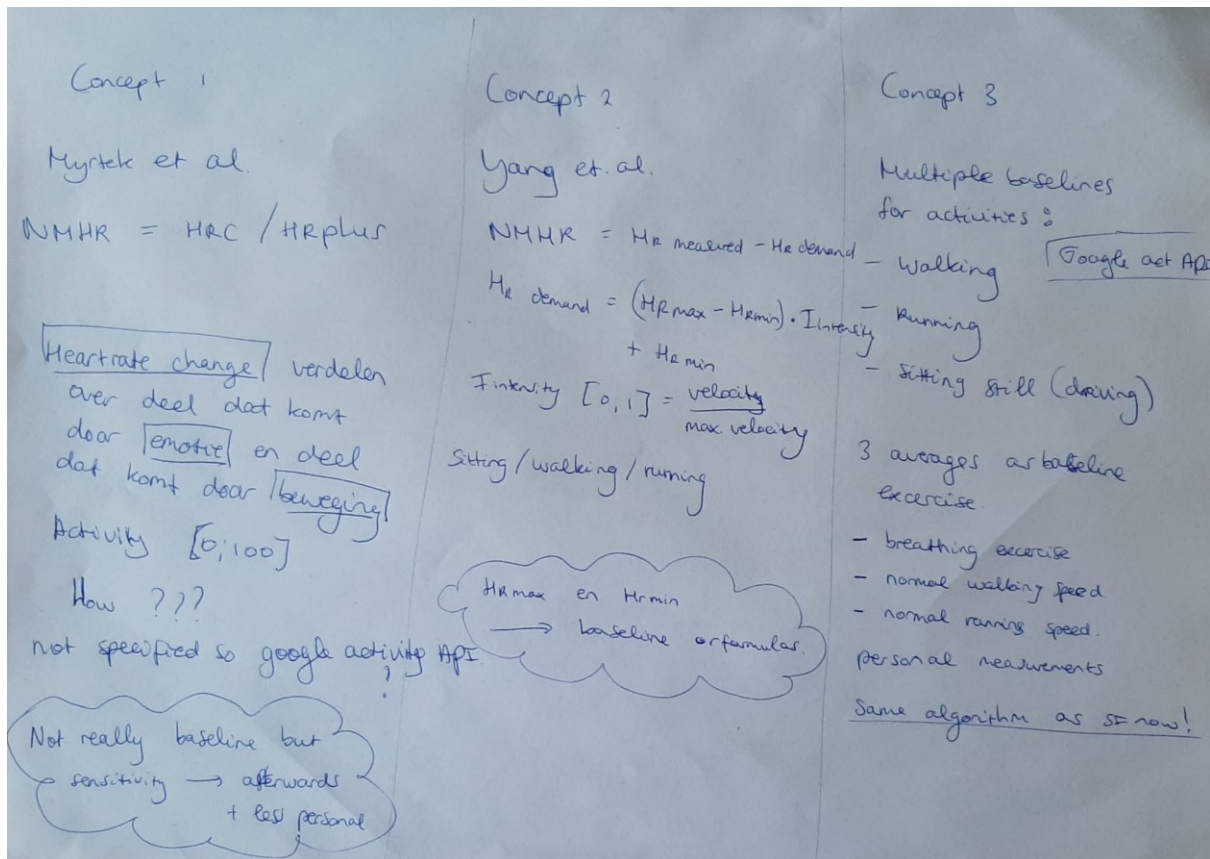 Concept 1
Myrtek et al.
NMHR = HRC / HRplus
Heartrate change verdelen
over deel dat komt
door emotie en deel
dat komt door beweging
Activity [0;100]
How ???
not specified so google activity API
?
Not really baseline but
sensitivity → afterwards
+ less personal
Concept 2
Yang et. al.
NMHR = HR measured - HR demand
HR demand = (HRmax - HRmin) · Intensity
+ HR min
Intensity [0,1] = velocity
max. velocity
Sitting / walking / running
HRmax en Hrmin
→ baseline or formulas.
Concept 3
Multiple baselines
for activities :
- Walking
Google act API
- Running
- Sitting still (driving)
3 averages as baseline
excercise.
- breathing excercise
- normal walking speed
- normal running speed.
personal measurements
Same algorithm as SF now!